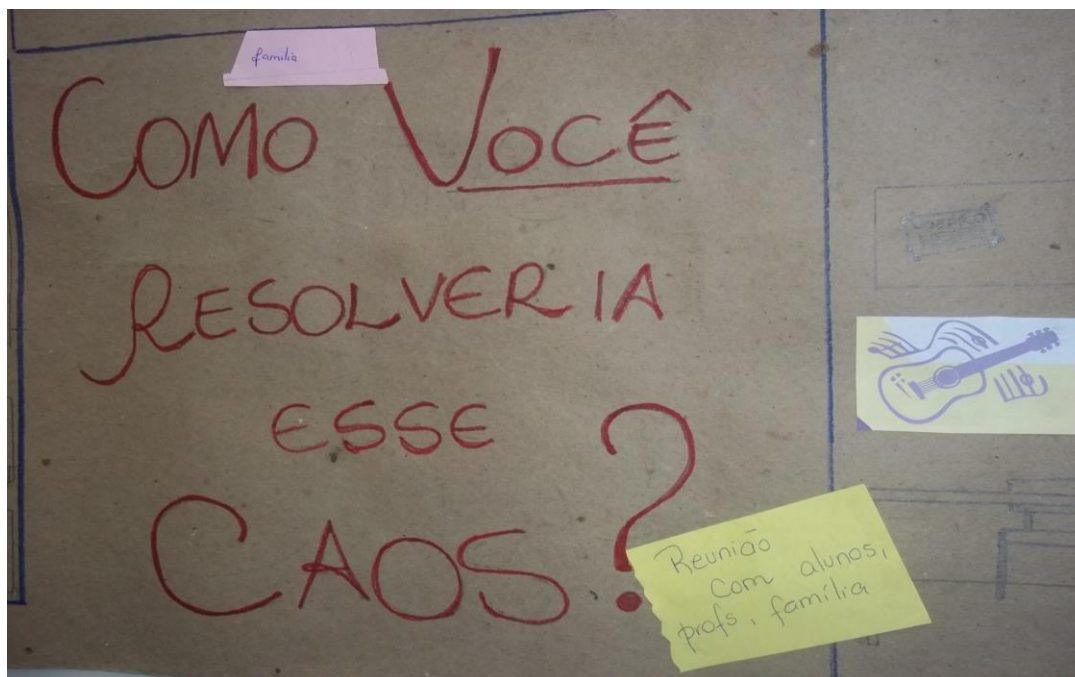 família
COMO VOCÊ
RESOLVERIA
ESSE
CAOS?
Reunião
com alunos,
profs, família